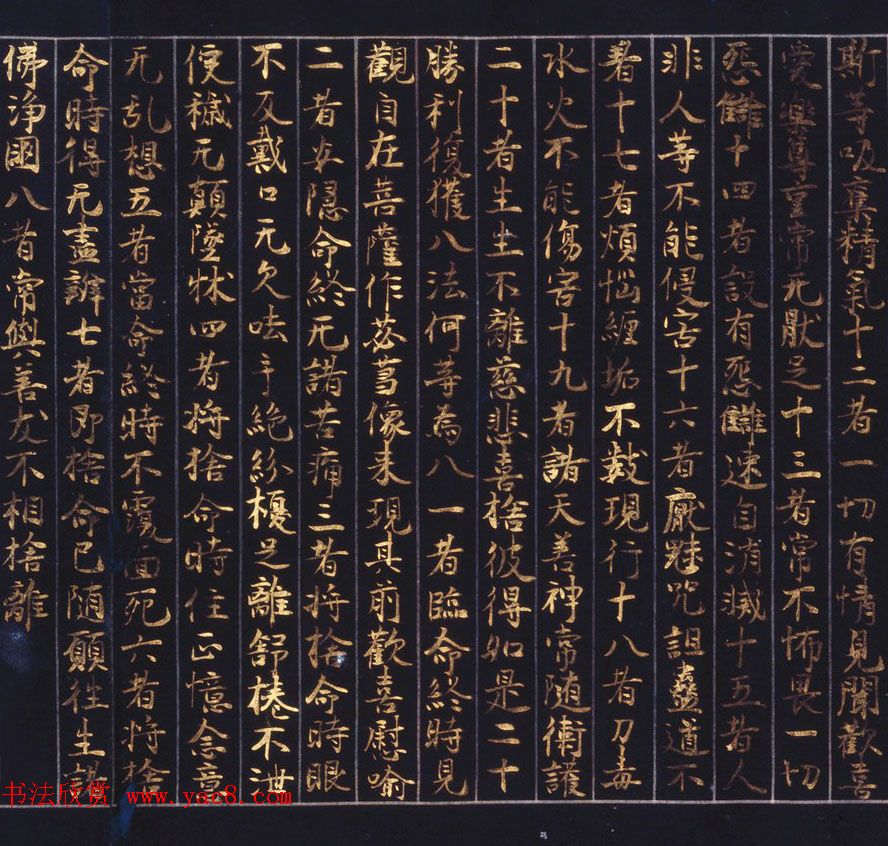 斯等吸棄精氣十二者一切有情見聞歡喜
愛樂尊重常无猒足十三者常不怖畏一切
怨讎十四者設有怨讎速自消滅十五者人
非人等不能侵害十六者厭魅咒詛蠱道不
著十七者煩惱纏垢不數現行十八者刀毒
水火不能傷害十九者諸天善神常隨衛護
二十者生生不離慈悲喜捨彼得如是二十
勝利復獲八法何等為八一者臨命終時見
觀自在菩薩作苾蒭像来現其前歡喜慰喻
二者安隱命終无諸苦痛三者將捨命時眼
不反戴口无欠呿手絕紛擾足離舒棬不泄
便穢无顛墜牀四者將捨命時住正憶念意
无乱想五者當命終時不覆面死六者將捨
命時得无盡辯七者即捨命已随願往生諸
佛淨國八者常與善友不相捨離
书法欣赏 www.yac8.com